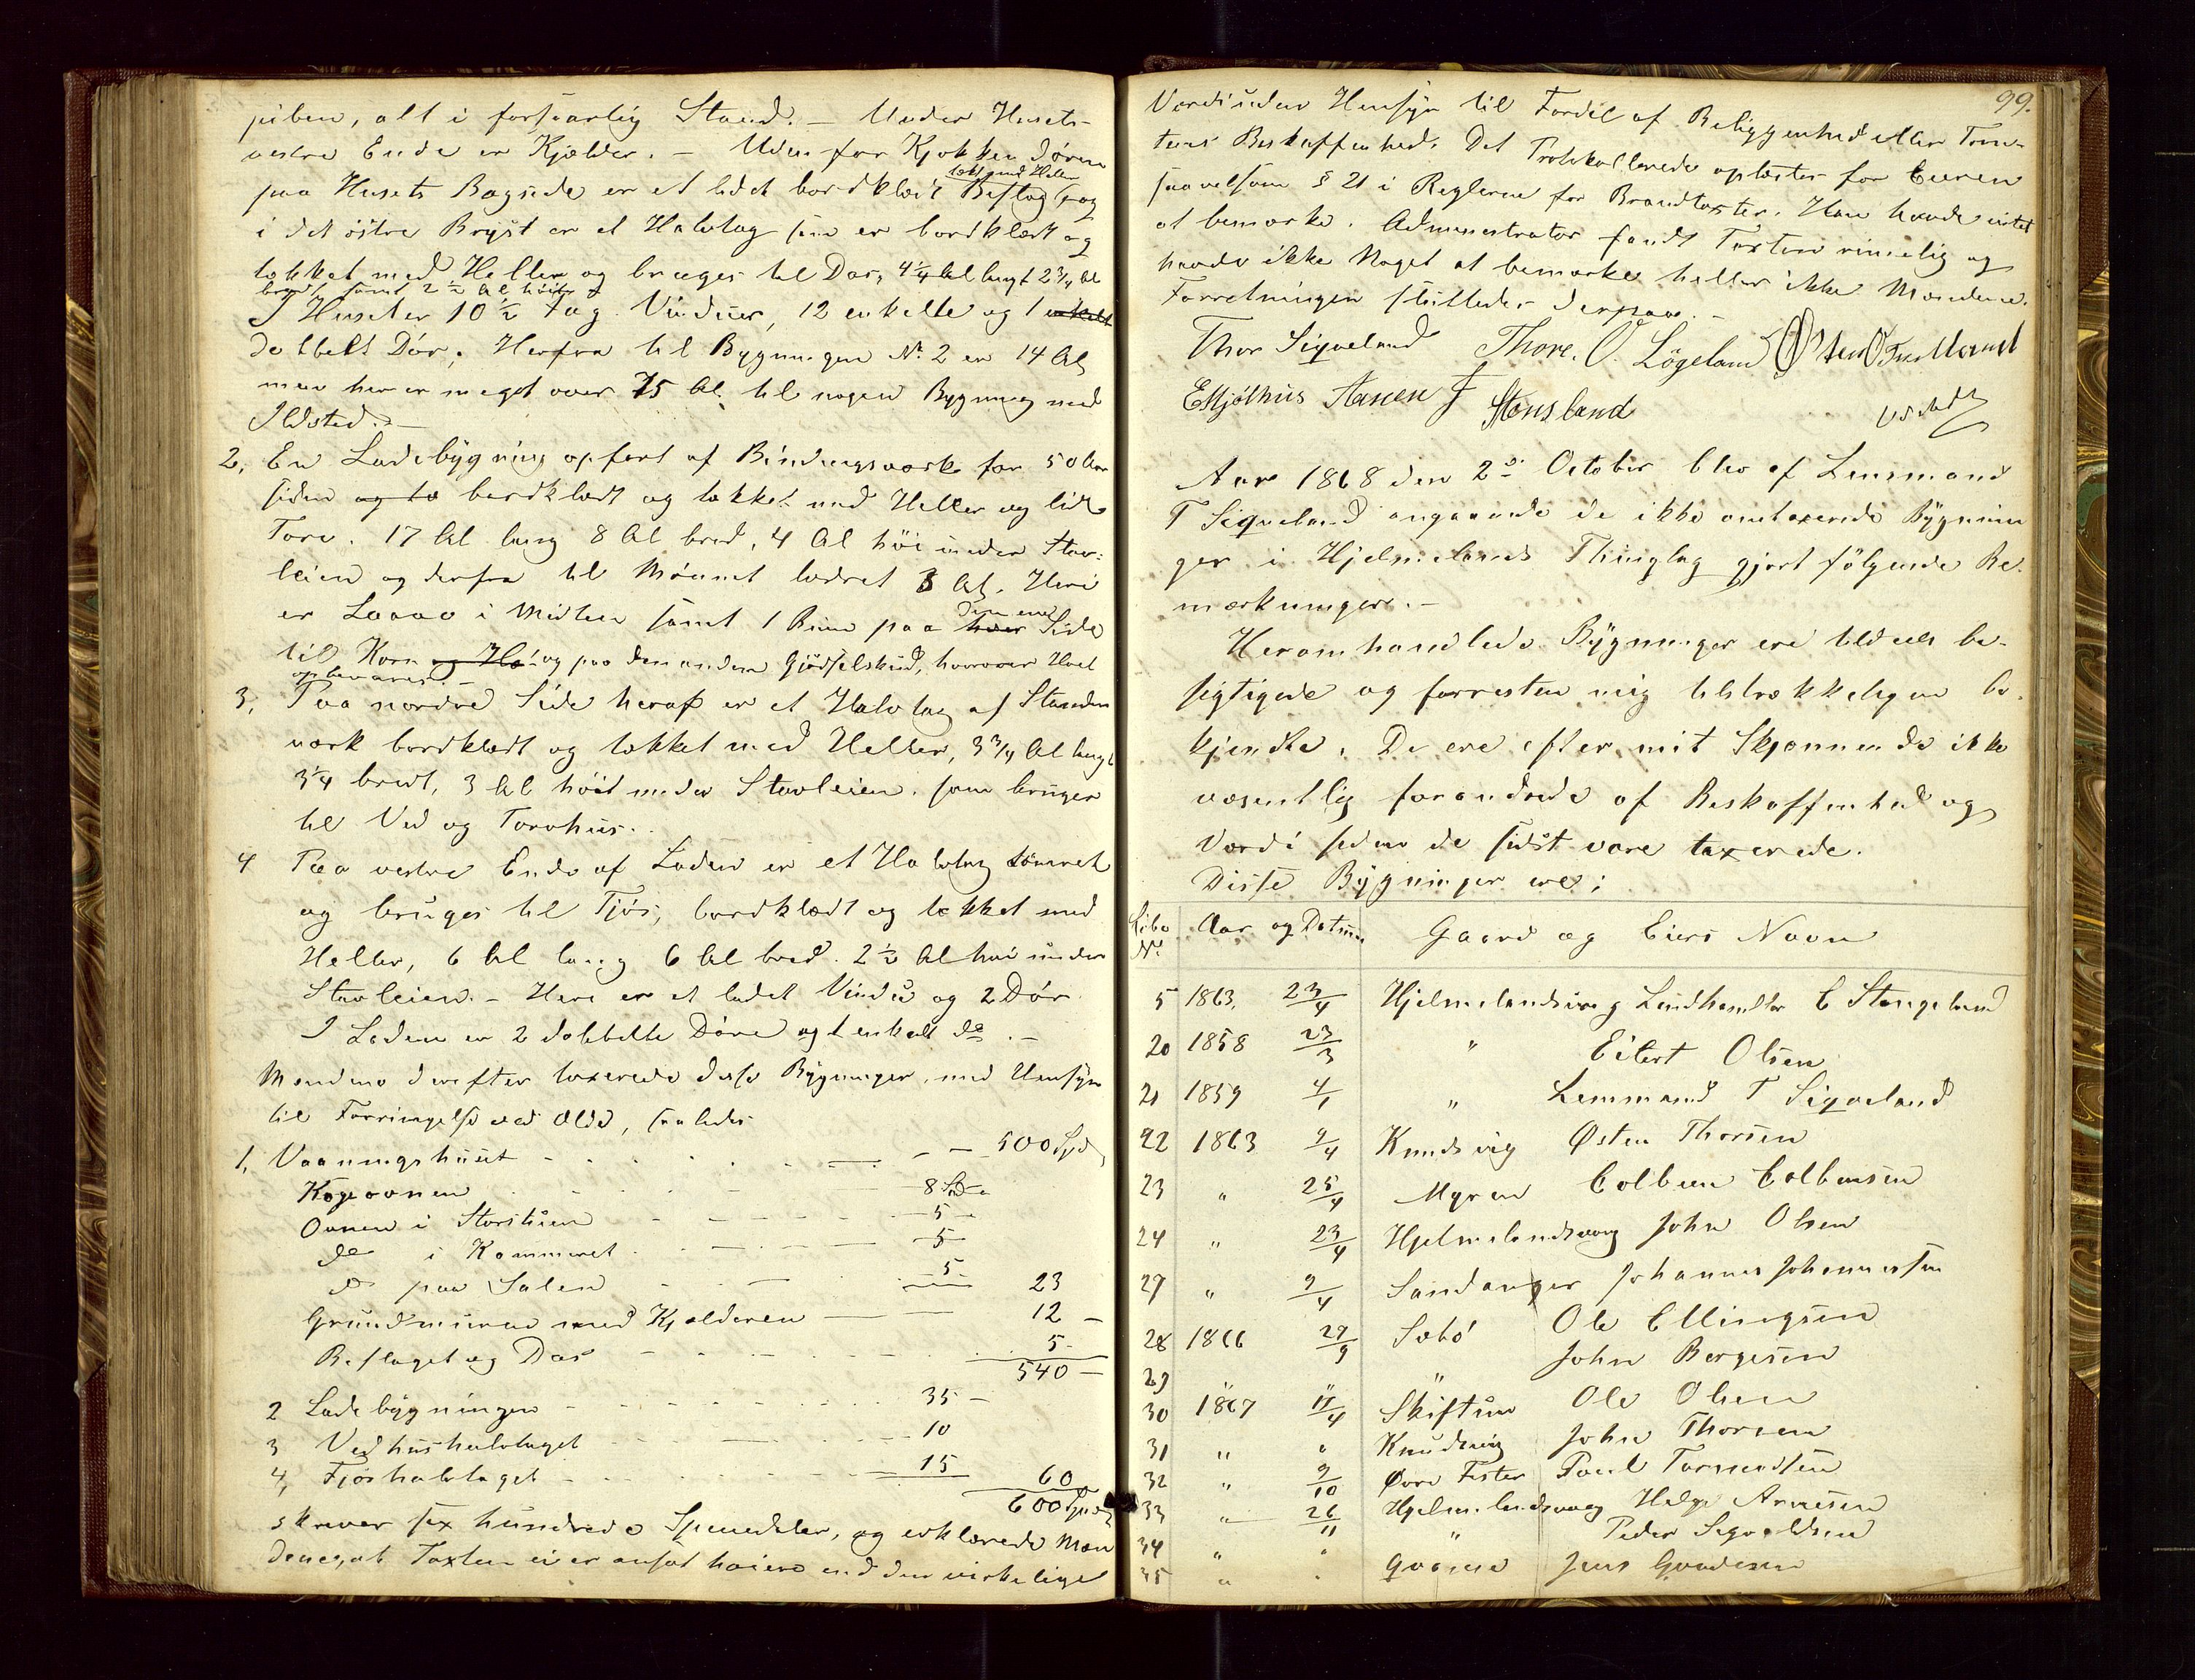 piben, alt i forsvarlig Stand. – Under Husets
vestre Ende er Kjælder. – Uden for Kjøkken Døren
takt med Heller
paa Husets Bagside er et lidet bordklædt Beslag, og
i det østre Bryst er et Halvtag som er bordklædt og
tækket med Heller og bruges til Das, 4 1/4 Al langt 2 3/4 Al
bredt samt 2 1/2 Al høit
I Huset er 10 1/2 Fag Vinduer, 12 enkelte og 1 enkelt
dobbelt Dør. Herfra til Bygningen No 2 er 14 Al,
men her er meget over 75 Al til nogen Bygning med
Ildsted. –
2, En Ladebygning opført af Bindingsværk for 50 Aar
siden og tæ bordklædt og tækket med Heller og lidt
Torv. 17 Al lang 8 Al bred, 4 Al høi under Stav-
leien og derfra til Mønnet lodret 3 Al. Heri
er Laave i Midten samt 1 Rum paa hver Side
den ene
til Korn og Hø og paa den anden Gjødselskud, hvorover Høet
opbevares. –
3, Paa nordre Side heraf er et Halvtag af Stander
værk bordklædt og tækket med Heller, 3 3/4 Al langt
3 1/4 bredt, 3 Al høit under Stavleien. som bruges
til Ved og Torvhus.
4 Paa vestre Ende af Laden er et Halvtag tømret
og bruges til Fjøs, bordklædt og tækket med
Heller, 6 Al lang 6 Al bred. 2 1/2 Al høi under
Stavleien. – Heri er et lidet Vindu og 2 Dør
I Laden er 2 dobbelte Døre og 1 enkelt do. –
Mændene derefter taxerede disse Bygninger, med Hensyn
til Forringelse ved Ælde, saaledes
1, Vaaningshuset – 500 Spd
Kogeovnen 8 Spd
Ovnen i Storstuen 5 –
do i Kammeret 5
do paa Salen 5 23
Grundmuren med Kjælderen 12 –
Beslaget og Das 5 –
540 –
2 Ladebygningen 35 –
3 Vedhushalvtaget 10
4, Fjøshalvtaget 15 60
600 Spd
skriver sex hundrede Speciedaler, og erklærede Mæn
denes, at Taxten ei er ansat høiere end den virkelige
99.
Værdi uden Hensyn til Fordel af Beliggenhed eller Tom-
tens Beskaffenhed. Det Protokollerede oplæstes for Eieren
saavelsom § 21 i Reglerne for Brandtaxter. Han havde intet
at bemærke. Administrator fandt Taxten rimelig og
havde ikke Noget at bemærke heller ikke Mændene.
Forretningen sluttedes derpaa. –
Thor Siqveland Thore. O. Lögeland Østen O Fundland
E Mjølhus Aanen J Stensland
Aar 1868 den 2de October blev af Lensmand
T Siqveland angaaende de ikke omtaxerede Bygnin
ger i Hjelmelands Thinglag gjort følgende Be-
mærkninger. –
Heromhandlede Bygninger ere tildeels be-
sigtigede og forresten mig tilstrækkeligen be-
kjendte. De ere efter mit Skjønnende ikke
væsentlig forandrede af Beskaffenhed og
Værdi siden de sidst vare taxerede.
Disse Bygninger ere;
Løbe No Aar og Datum Gaard og Eiers Navn
5 1863, 23/4 Hjelmelandsvaag Landhandler E Stangeland
20 1858 23/3 " Eilert Olsen
21 1859 4/1 " Lensmand T Siqveland
22 1863 9/4 Knudsvig Østen Thorsen
23 " 25/4 Myren Colben Colbensen
24 " 23/4 Hjelmelandsvaag John Olsen
27 " 9/4 Sandanger Johannes Johannessen
28 1866 27/9 Sæbø Ole Ellingsen
29 " " " John Børgesen
30 1867 11/4 Skiftun Ole Olsen
31 " " Knudsvig John Thorsen
32 " 9/10 Øvre Fister Poul Tormodsen
33 " 26/11 Hjelmelandsvaag Helge Arnesen
34 " " " Peder Sigvaldsen
35 " " Qvame Jens Gundersen